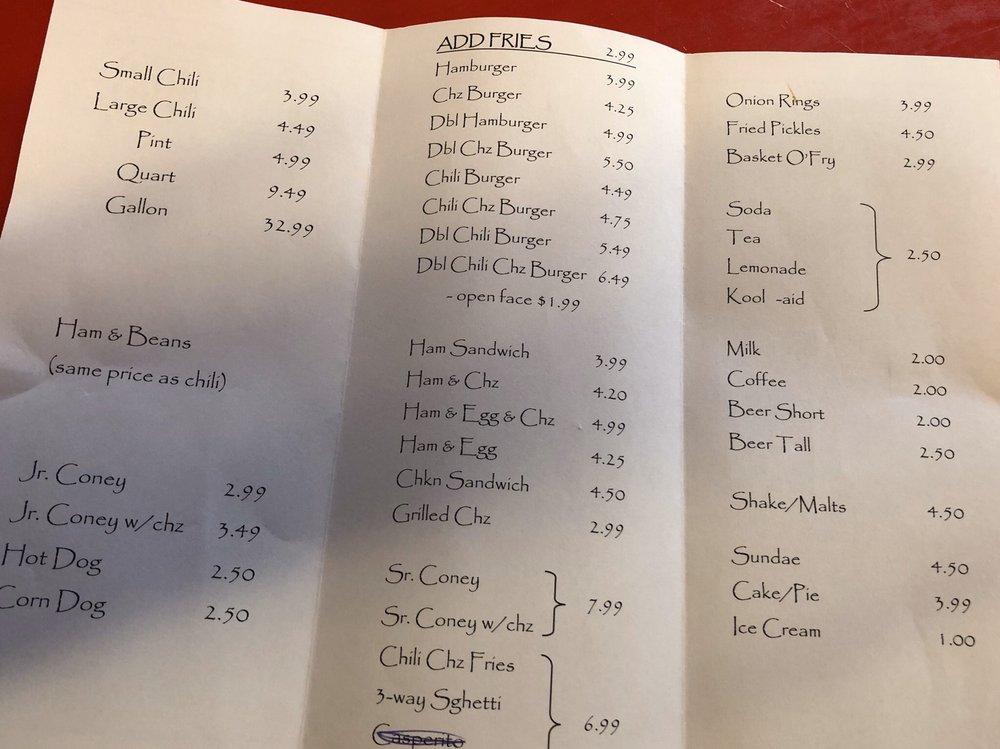 Small Chili 3.99
Large Chili 4.49
Pint 4.99
Quart 9.49
Gallon 32.99
Ham & Beans
(same price as chili)
Jr. Coney 2.99
Jr. Coney w/chz 3.49
Hot Dog 2.50
Corn Dog 2.50
ADD FRIES 2.99
Hamburger 3.99
Chz Burger 4.25
Dbl Hamburger 4.99
Dbl Chz Burger 5.50
Chili Burger 4.49
Chili Chz Burger 4.75
Dbl Chili Burger 5.49
Dbl Chili Chz Burger 6.49
- open face $1.99
Ham Sandwich 3.99
Ham & Chz 4.20
Ham & Egg & Chz 4.99
Ham & Egg 4.25
Chkn Sandwich 4.50
Grilled Chz 2.99
Sr. Coney
7.99
Sr. Coney w/chz
Chili Chz Fries
3-way Sghetti
6.99
Onion Rings 3.99
Fried Pickles 4.50
Basket O'Fry 2.99
Soda
Tea
2.50
Lemonade
Kool -aid
Milk 2.00
Coffee 2.00
Beer Short 2.00
Beer Tall 2.50
Shake/Malts 4.50
Sundae 4.50
Cake/Pie 3.99
Ice Cream 1.00